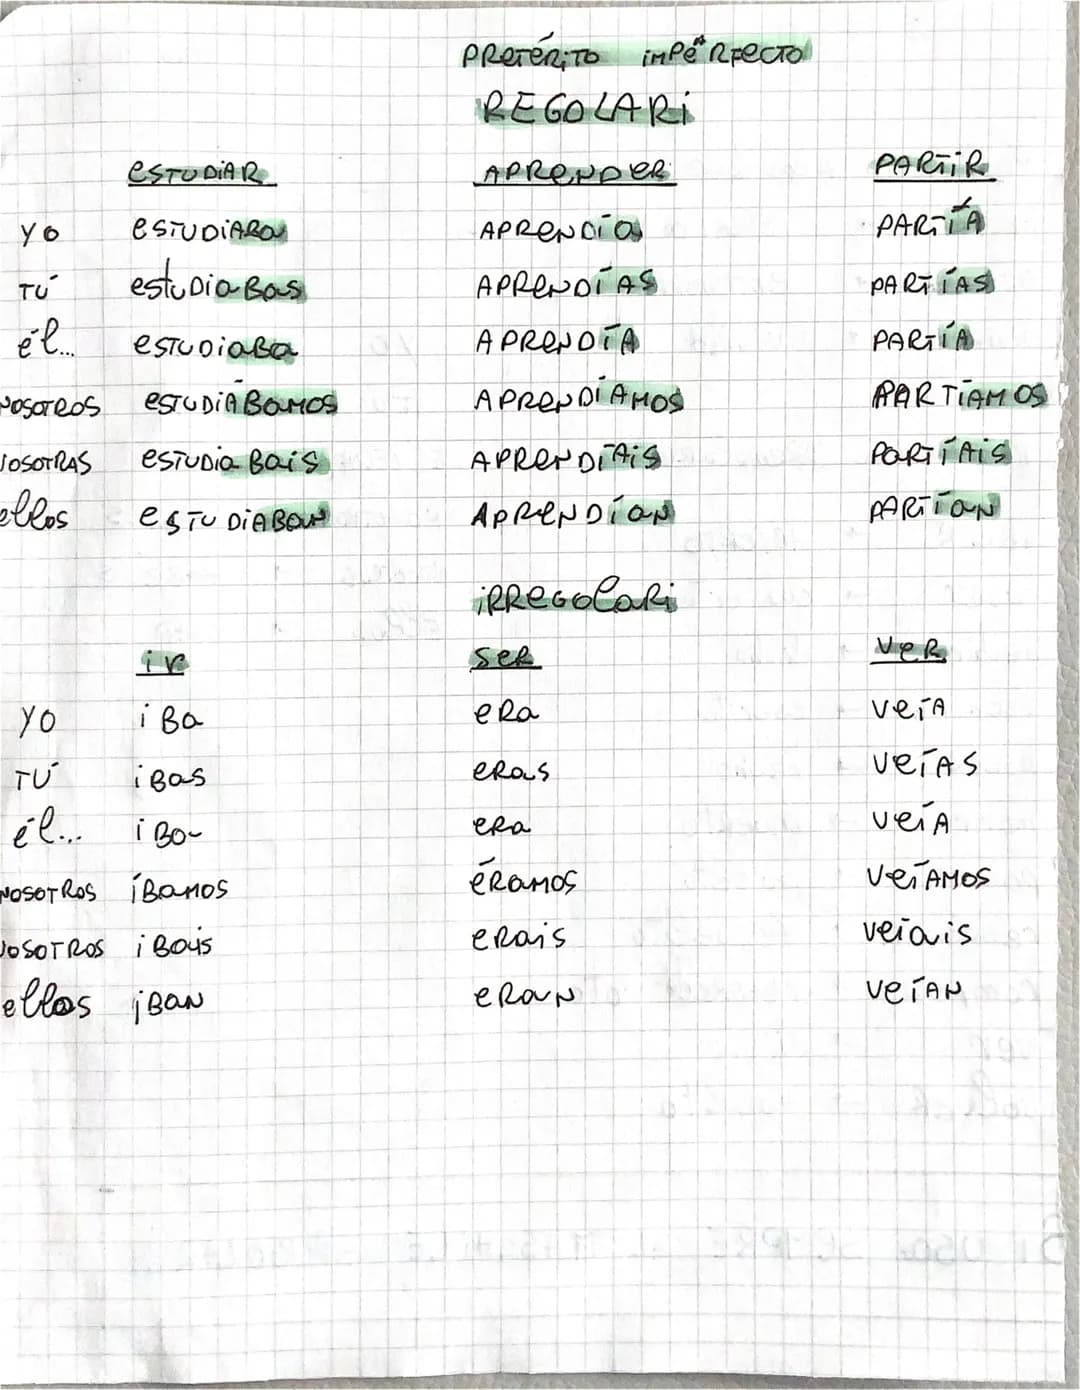 PRETÉRITO IMPERFECTO
REGOLARI
ESTUDIAR APRENDER PARTIR
YO ESTUDIABA APRENDÍA PARTÍA
TÚ estudiaBas APRENDÍAS PARTÍAS
él... ESTUDIABA APRENDÍA PARTÍA
NOSOTROS ESTUDIÁBAMOS APRENDÍAMOS PARTÍAMOS
VOSOTRAS ESTUDIABAIS APRENDÍAIS PARTÍAIS
ellos ESTUDIABAN APRENDÍAN PARTÍAN
IRREGOLARI
ir SER VER
YO iBa eRa VeíA
TÚ iBas eRas VeíAS
él... iBa eRa VeíA
NOSOTROS íBaMOS éRaMOS VeíAMOS
VOSOTROS iBais eRais Veíais
ellos iBaN eRaN VeíAN